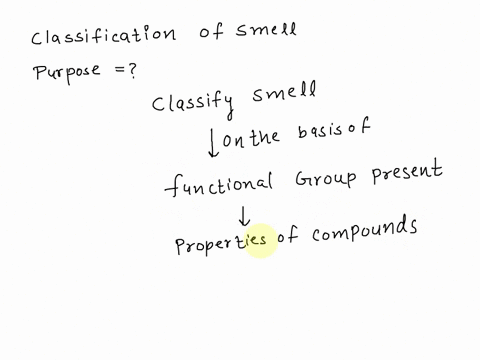 Classification of smell
Purpose = ?
Classify smell
↓ On the basis of
functional Group present
↓
Properties of compounds